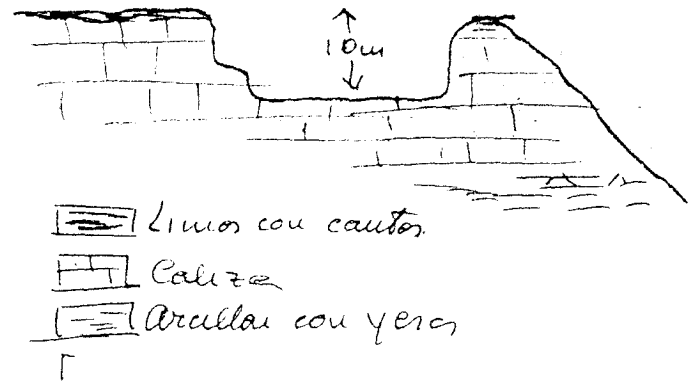 10m
Limos con cantos
Caliza
Arcillas con yeso